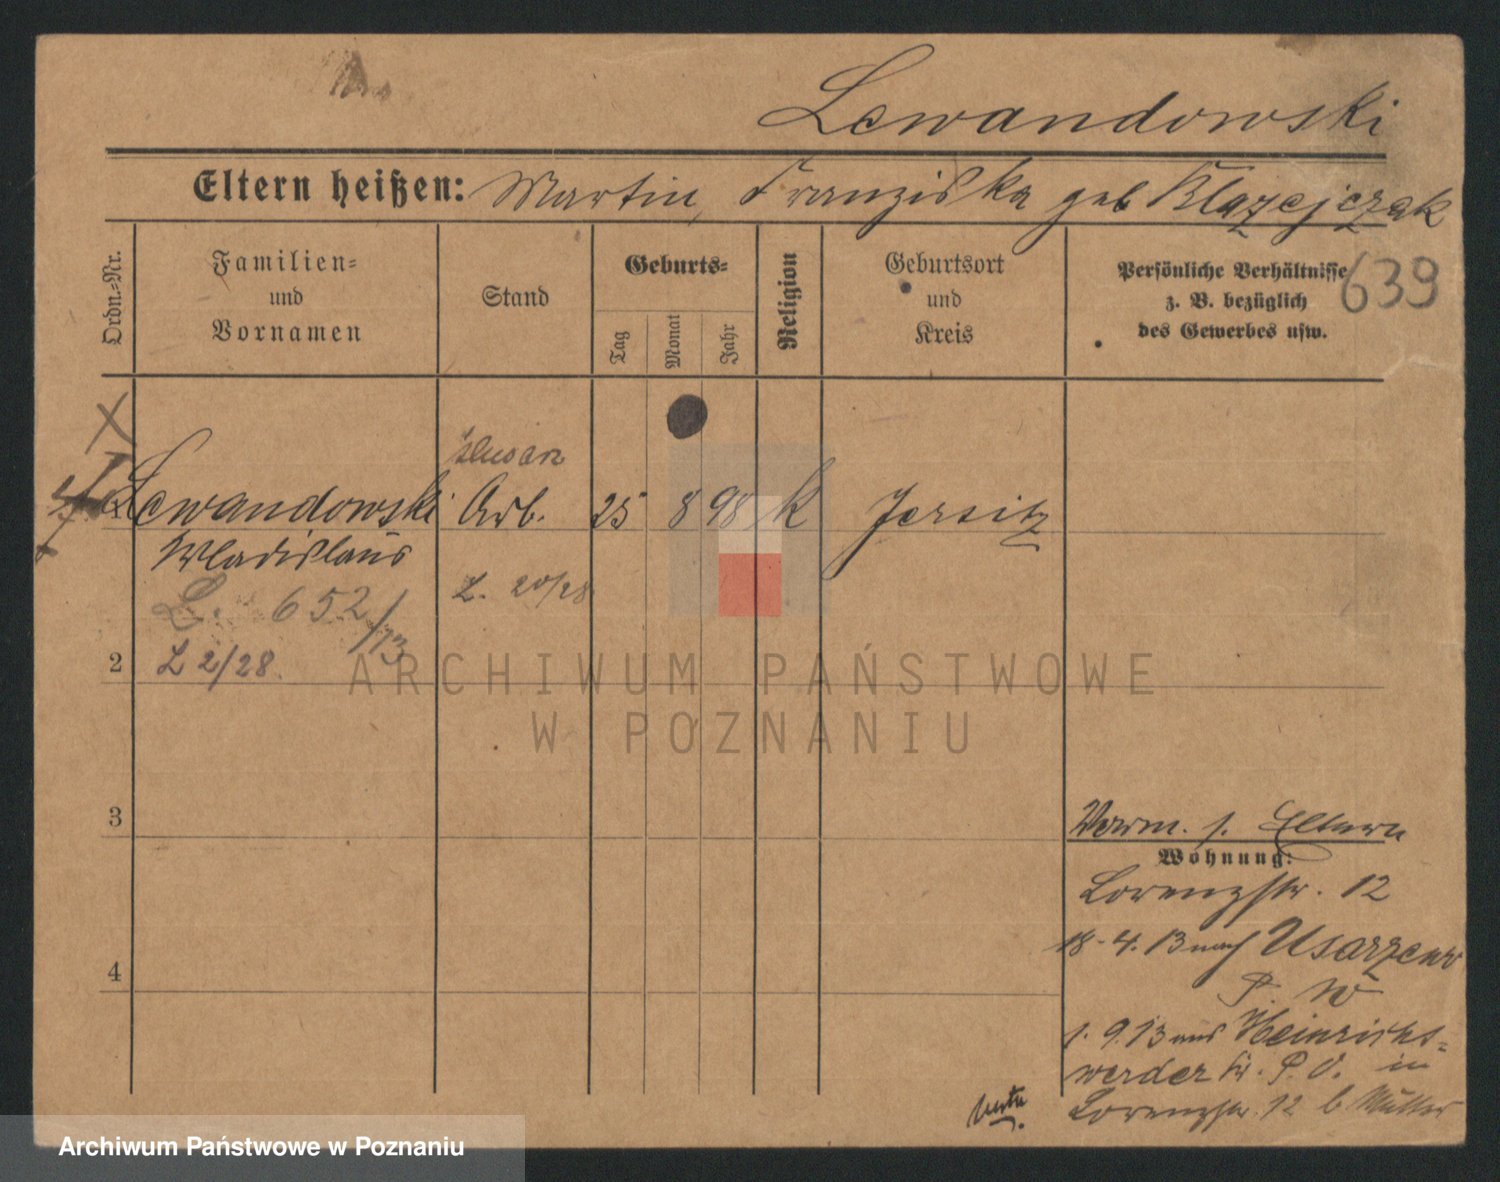 Lewandowski
Eltern heißen: Martin, Franziska geb Blazejczak
Ordn.-Nr.
Familien-
und
Vornamen
Stand
Geburts-
Tag
Monat
Jahr
Religion
Geburtsort
und
Kreis
Persönliche Verhältnisse
z. B. bezüglich
des Gewerbes usw.
639
X
Lewandowski
Wladislaus
Arb.
25 8 98 K
Jersitz
L. 652/13
L. 20/28
2
L 2/28.
ARCHIWUM PAŃSTWOWE
W POZNANIU
3
4
Verm. s. Eltern
Wohnung:
Lorenzstr. 12
18-4.13 nach Usarzewo
P. W
1.9.13 aus Heinrichs-
werder Kr. P. O. in
Lorenzstr. 12 b Mutter
Archiwum Państwowe w Poznaniu